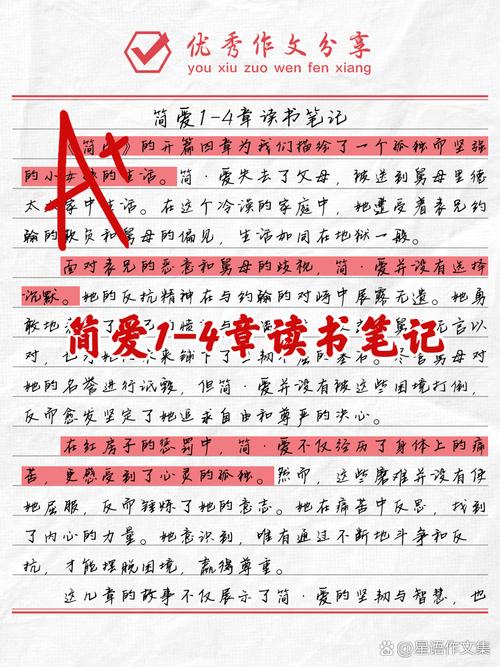 优秀作文分享
you xiu zuo wen fen xiang
简爱1-4章读书笔记
A+
》的开篇四章为我们描绘了一个孤独而坚强
的小 的生活。简·爱失去了父母,被送到舅母里德
太 家中生活。在这个冷漠的家庭中,她遭受着表兄约
翰的欺负和舅母的偏见,生活如同在地狱一般。
面对表兄的恶意和舅母的歧视,简·爱并没有选择
沉默。她的反抗精神在与约翰的对峙中展露无遗。她勇
敢地
简爱1-4章读书笔记
言以
对,
母对
她的名誉进行诋毁,但简·爱并没有被这些困境打倒,
反而愈发坚定了她追求自由和尊严的决心。
在红房子的惩罚中,简·爱不仅经历了身体上的痛
苦,更感受到了心灵的孤独。然而,这些磨难并没有使
她屈服,反而锤炼了她的意志。她在痛苦中反思,找到
了内心的力量。她意识到,唯有通过不断地斗争和反
抗,才能摆脱困境,赢得尊重。
这几章的故事不仅展示了简·爱的坚韧与智慧,也
星语作文集